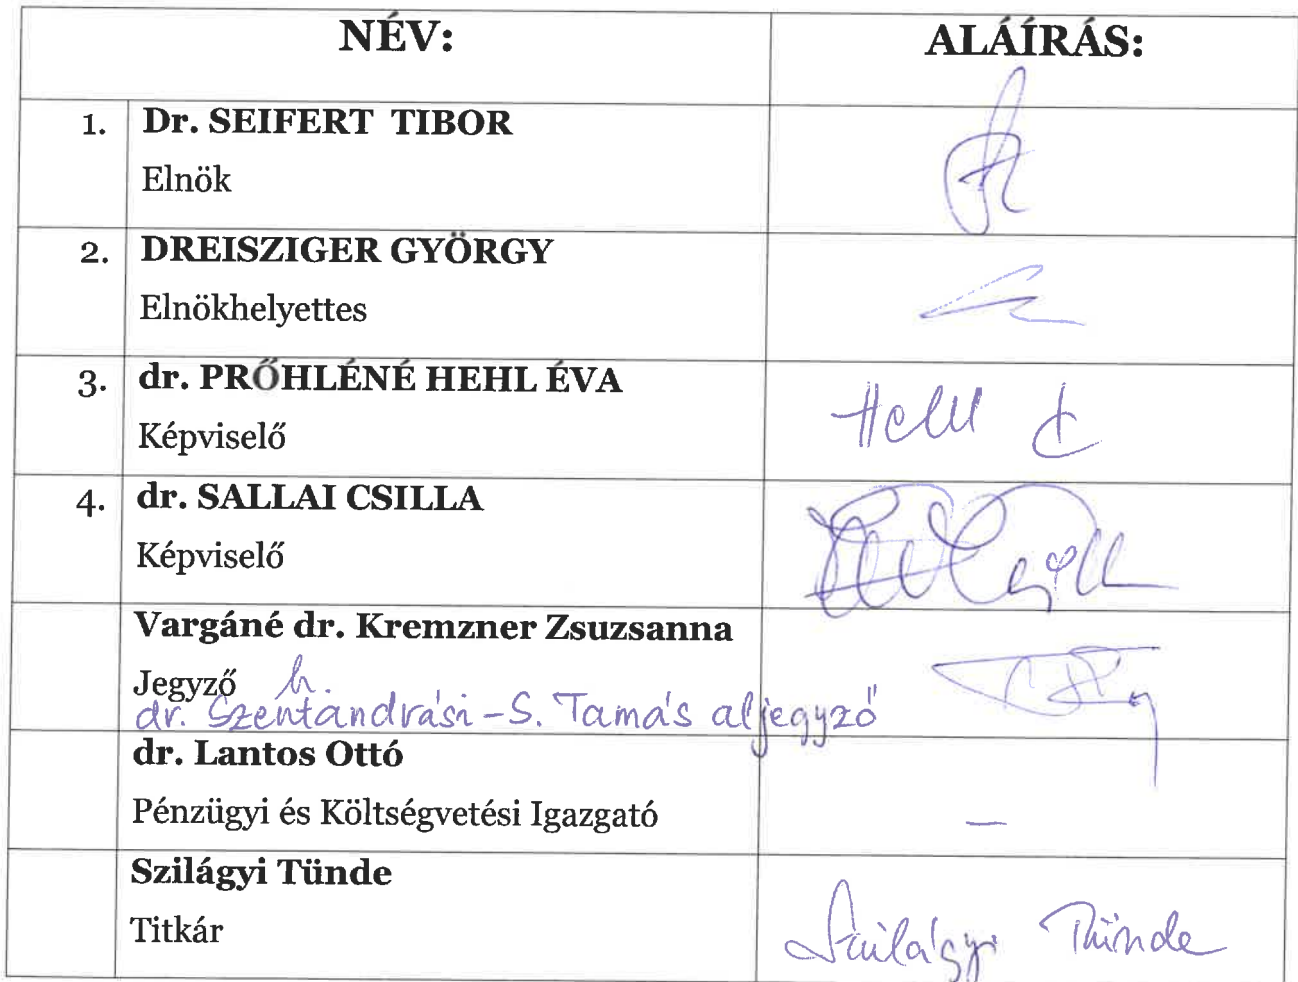 NÉV: ALÁÍRÁS:
1. Dr. SEIFERT TIBOR
Elnök
2. DREISZIGER GYÖRGY
Elnökhelyettes
3. dr. PRŐHLÉNÉ HEHL ÉVA
Képviselő Hehl É
4. dr. SALLAI CSILLA
Képviselő
Vargáné dr. Kremzner Zsuzsanna
Jegyző h.
dr. Szentandrási-S. Tamás aljegyző
dr. Lantos Ottó
Pénzügyi és Költségvetési Igazgató –
Szilágyi Tünde
Titkár Szilágyi Tünde